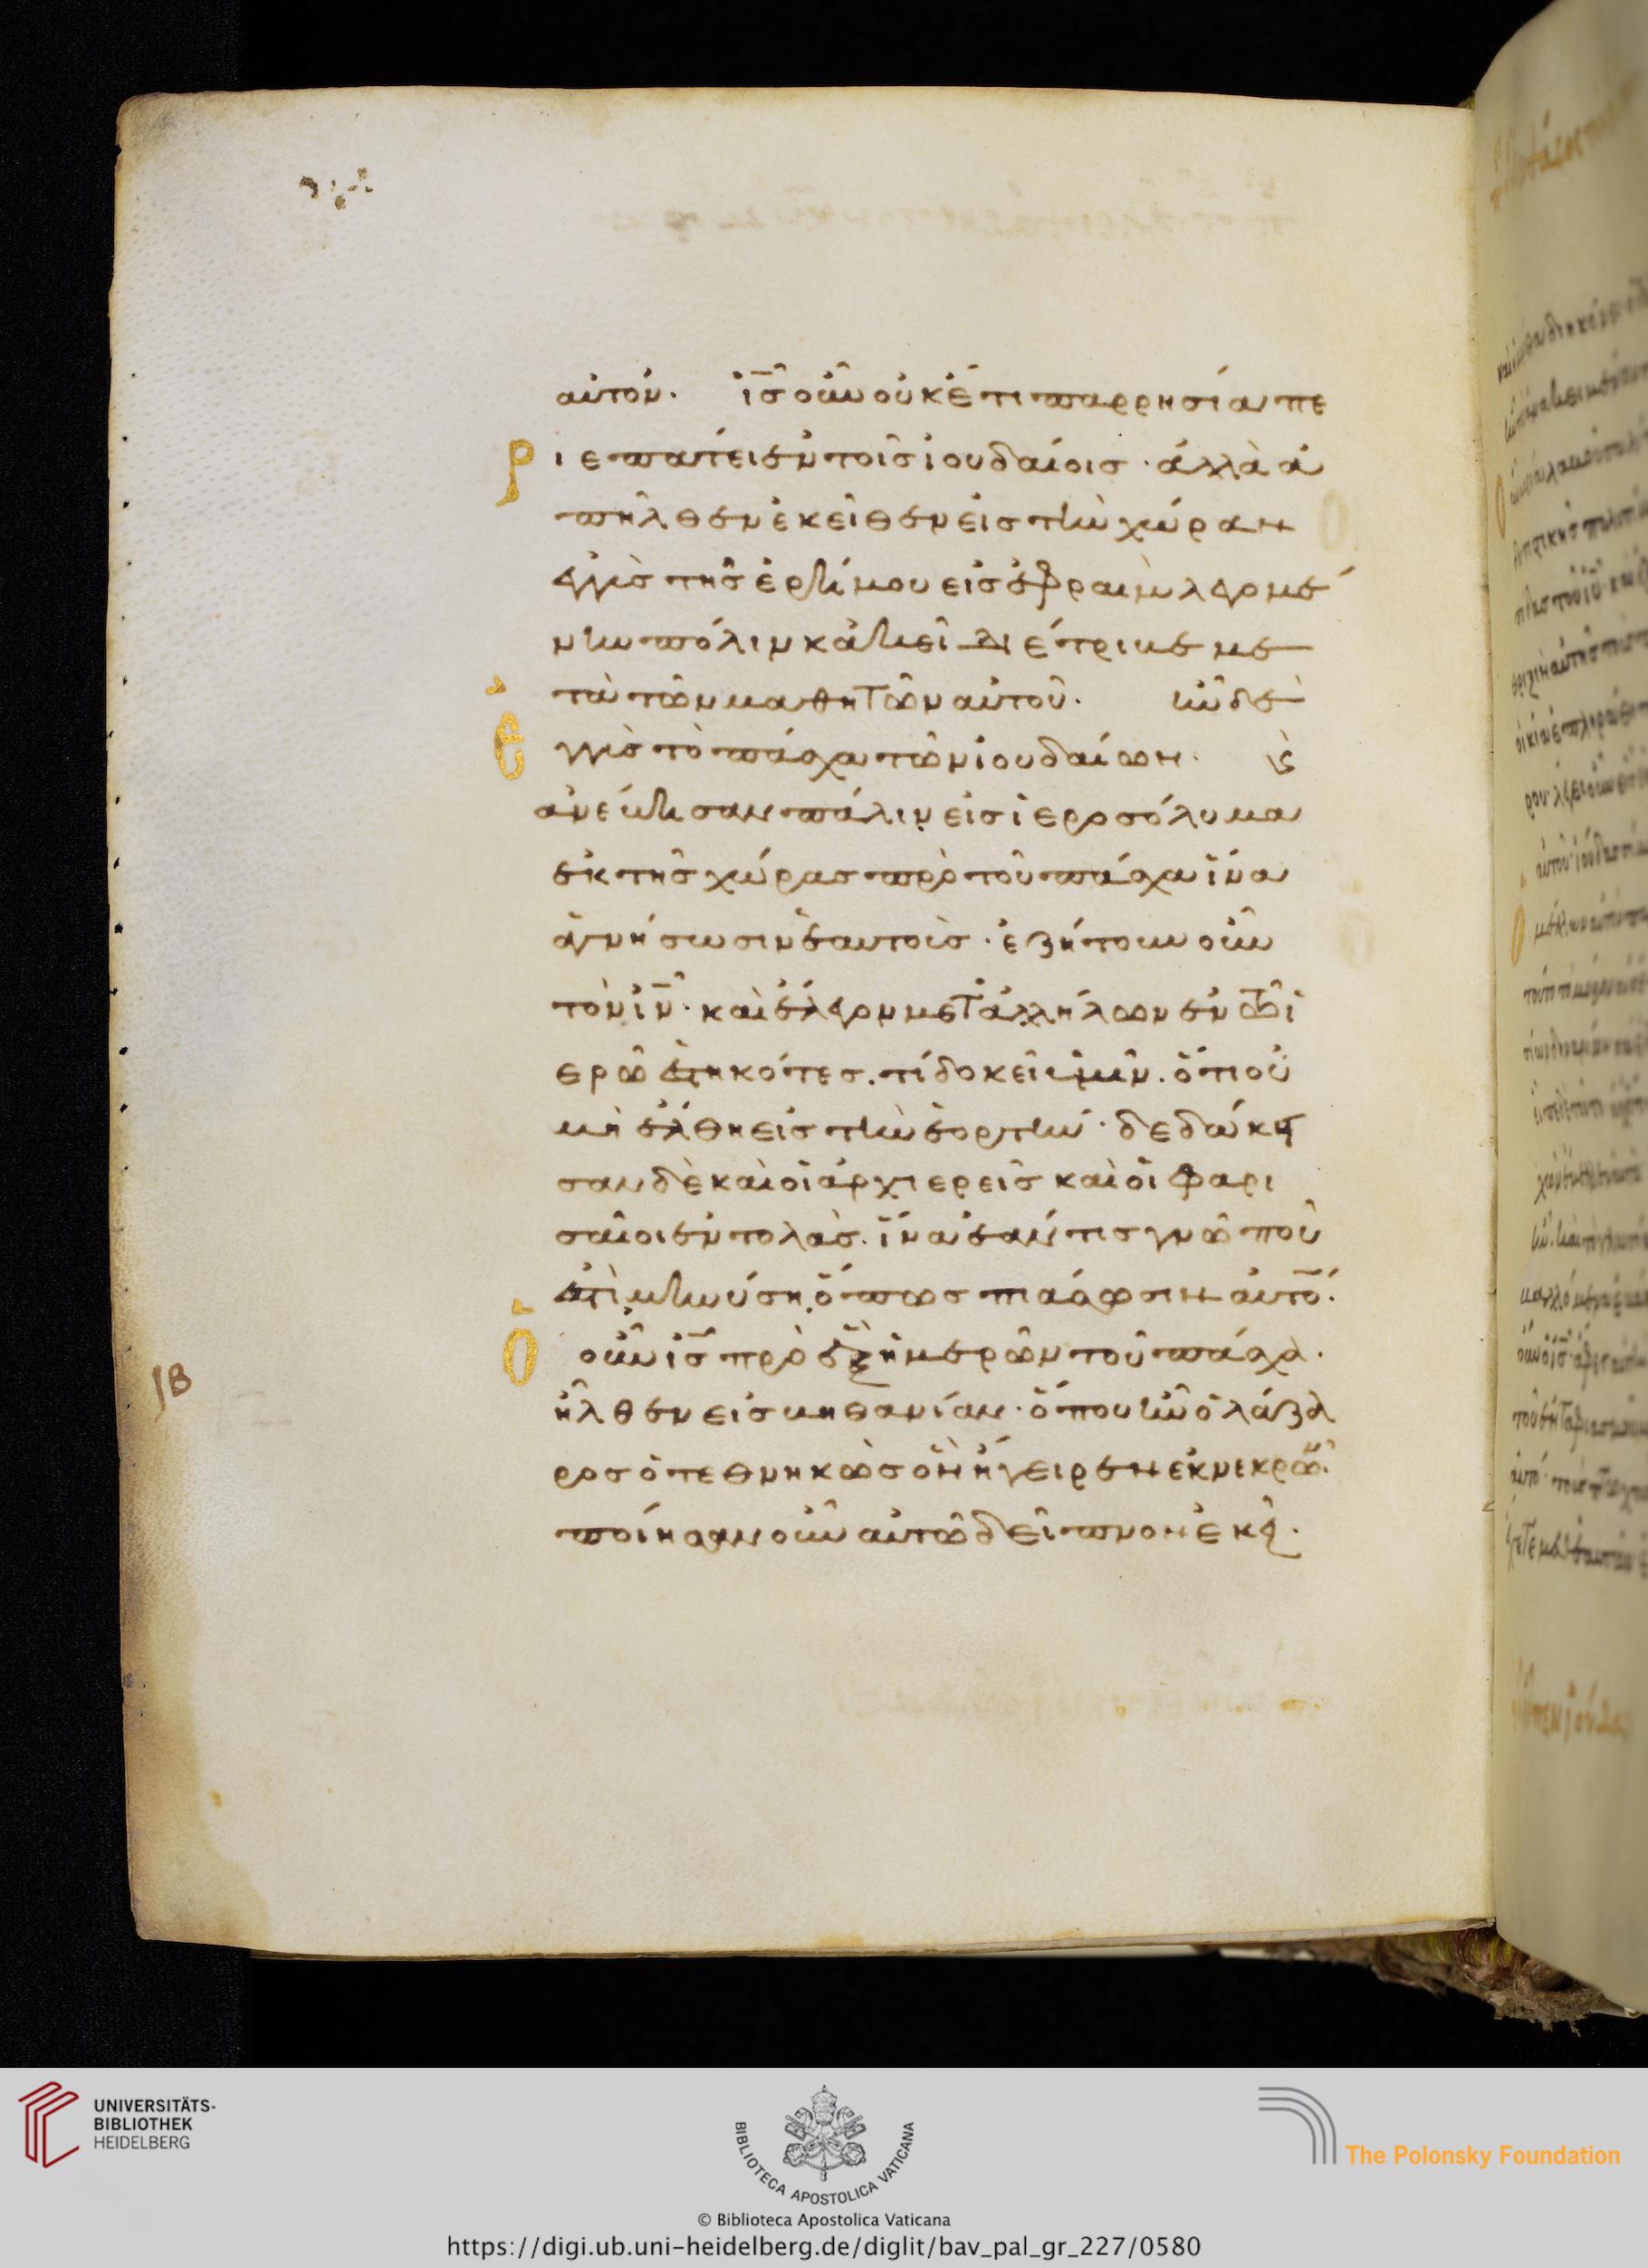 αὐτόν. ἰς̅ οὖν οὐκέτι παρρησία πε
ριεπάτει ἐν τοῖς ἰουδαίοις· ἀλλὰ ἀ
πῆλθεν ἐκεῖθεν εἰς τὴν χώραν
ἐγγὺς τῆς ἐρήμου εἰς ἐφραὶμ λεγομέ
νην πόλιν κἀκεῖ διέτριβε με
τὰ τῶν μαθητῶν αὐτοῦ. ἦν δὲ
ἐγγὺς τὸ πάσχα τῶν ἰουδαίων. κ(αὶ)
ἀνέβησαν πάλιν εἰς ἱεροσόλυμα
ἐκ τῆς χώρας πρὸ τοῦ πάσχα ἵνα
ἁγνήσωσιν ἑαυτοὺς· ἐζήτουν οὖν
τὸν ἰν̅· καὶ ἔλεγον μετ' ἀλλήλων ἐν τῶ ἱ
ερῶ ἑστηκότες. τί δοκεῖ ὑμῖν. ὅτι οὐ
μὴ ἔλθη εἰς τὴν ἑορτήν· δεδώκει
σαν δὲ καὶ οἱ ἀρχιερεῖς καὶ οἱ φαρι
σαῖοι ἐντολὰς. ἵνα ἐάν τις γνῶ ποῦ
ἐστὶ μηνύση, ὅπως πιάσωσιν αὐτό̅.
Ὁ οὖν ἰς̅ πρὸ ἓξ ἡμερῶν τοῦ πάσχα.
ἦλθεν εἰς βηθανίαν· ὅπου ἦν ὁ λάζα
ρος ὁ τεθνηκὼς ὃν ἤγειρεν ἐκ νεκρῶ̅.
ἐποίησαν οὖν αὐτῶ δεῖπνον ἐκεῖ.
ΙΒ
UNIVERSITÄTS-
BIBLIOTHEK
HEIDELBERG
BIBLIOTECA APOSTOLICA VATICANA
The Polonsky Foundation
© Biblioteca Apostolica Vaticana
https://digi.ub.uni-heidelberg.de/diglit/bav_pal_gr_227/0580